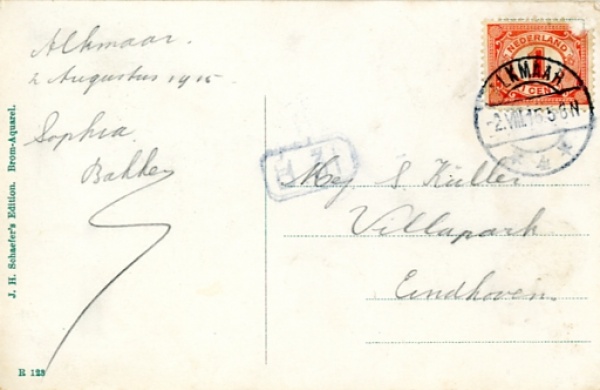 Alkmaar.
2 Augustus 1915
Sophia.
Bakker
Mej S Küller
Villapark
Eindhoven.
NEDERLAND
1
1 CENT
ALKMAAR
-2.VIII.15.5-8N
* 4 *
J. H. Schaefer's Edition. Brom-Aquarel.
R 123